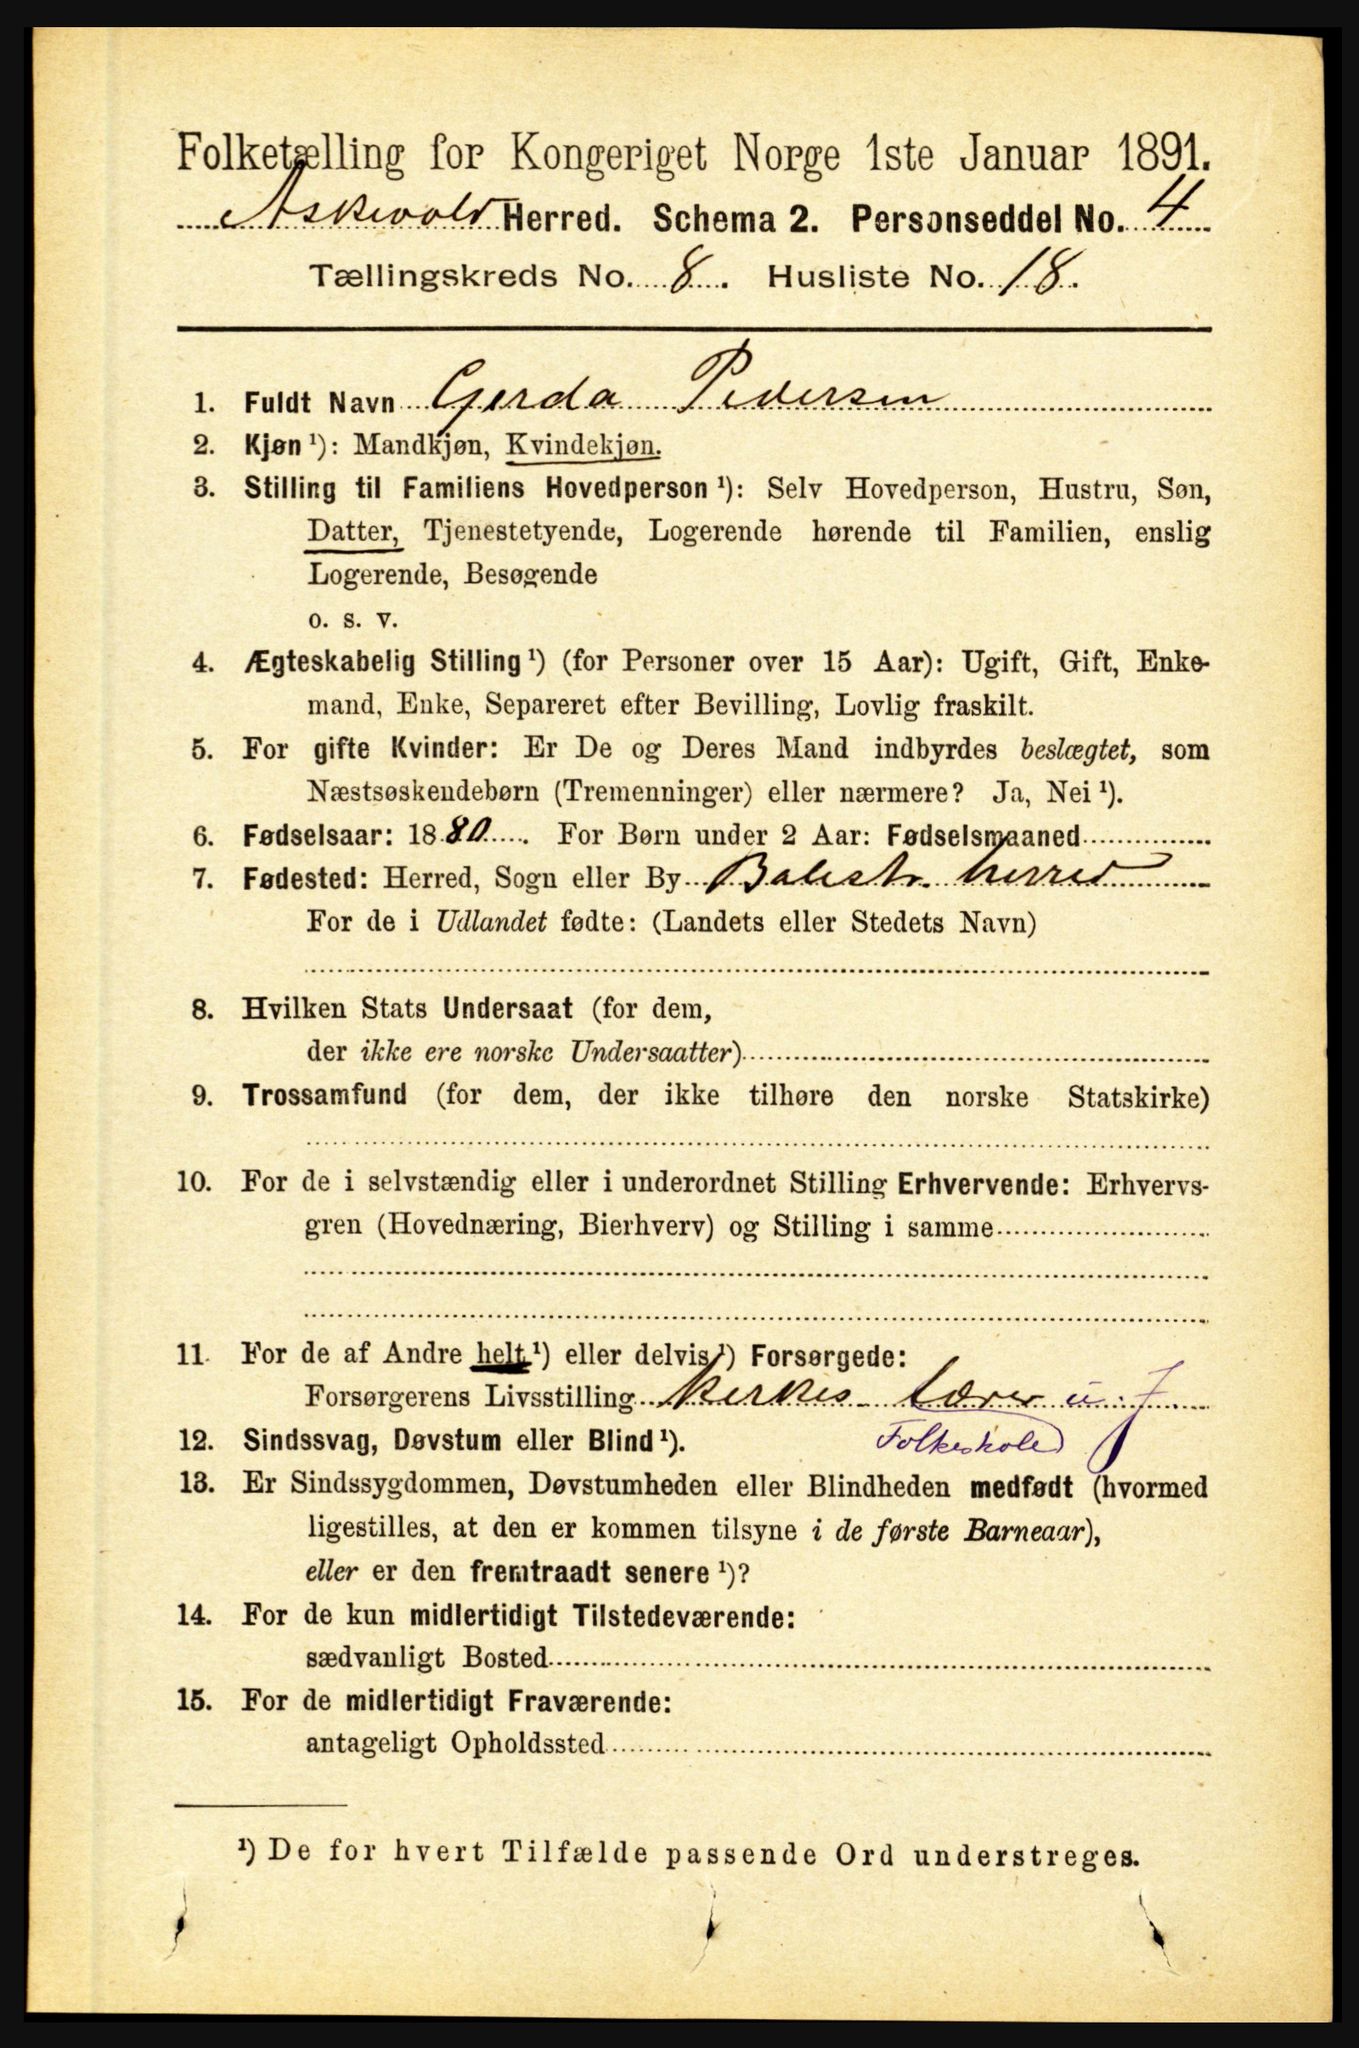 Folketælling for Kongeriget Norge 1ste Januar 1891.
Askevold Herred. Schema 2. Personseddel No. 4
Tællingskreds No. 8. Husliste No. 18.
1. Fuldt Navn Gerda Pedersen
2. Kjøn¹): Mandkjøn, Kvindekjøn.
3. Stilling til Familiens Hovedperson¹): Selv Hovedperson, Hustru, Søn,
Datter, Tjenestetyende, Logerende hørende til Familien, enslig
Logerende, Besøgende
o. s. v.
4. Ægteskabelig Stilling¹) (for Personer over 15 Aar): Ugift, Gift, Enke-
mand, Enke, Separeret efter Bevilling, Lovlig fraskilt.
5. For gifte Kvinder: Er De og Deres Mand indbyrdes beslægtet, som
Næstsøskendebørn (Tremenninger) eller nærmere? Ja, Nei¹).
6. Fødselsaar: 1880. For Børn under 2 Aar: Fødselsmaaned
7. Fødested: Herred, Sogn eller By Balestr. herred
For de i Udlandet fødte: (Landets eller Stedets Navn)
8. Hvilken Stats Undersaat (for dem,
der ikke ere norske Undersaatter)
9. Trossamfund (for dem, der ikke tilhøre den norske Statskirke)
10. For de i selvstændig eller i underordnet Stilling Erhvervende: Erhvervs-
gren (Hovednæring, Bierhverv) og Stilling i samme
11. For de af Andre helt¹) eller delvis¹) Forsørgede:
Forsørgerens Livsstilling Kerkes. Lærer u. J
12. Sindssvag, Døvstum eller Blind¹). Folkeskole
13. Er Sindssygdommen, Døvstumheden eller Blindheden medfødt (hvormed
ligestilles, at den er kommen tilsyne i de første Barneaar),
eller er den fremtraadt senere¹)?
14. For de kun midlertidigt Tilstedeværende:
sædvanligt Bosted
15. For de midlertidigt Fraværende:
antageligt Opholdssted
¹) De for hvert Tilfælde passende Ord understreges.